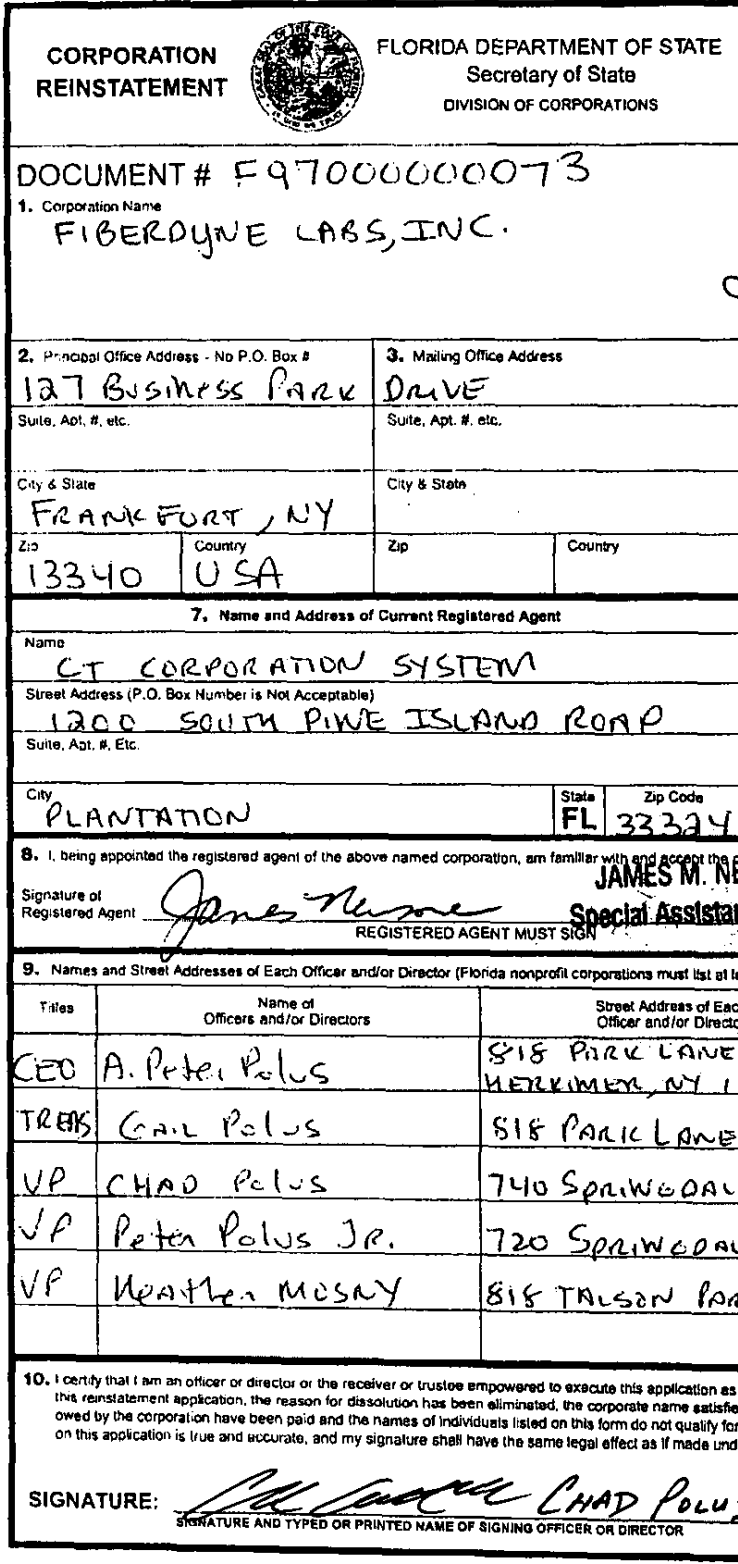 CORPORATION
REINSTATEMENT
FLORIDA DEPARTMENT OF STATE
Secretary of State
DIVISION OF CORPORATIONS
DOCUMENT # F97000000073
1. Corporation Name
FIBERDYNE LABS, INC.
2. Principal Office Address - No P.O. Box #
3. Mailing Office Address
127 Business PARK DRIVE
Suite, Apt. #, etc.
Suite, Apt. #, etc.
City & State
City & State
FRANKFORT, NY
Zip
Country
Zip
Country
13340
USA
7. Name and Address of Current Registered Agent
Name
CT CORPORATION SYSTEM
Street Address (P.O. Box Number is Not Acceptable)
1200 SOUTH PINE ISLAND ROAD
Suite, Apt. #, Etc.
City
State
Zip Code
PLANTATION
FL
33324
8. I, being appointed the registered agent of the above named corporation, am familiar with and accept the
JAMES M. NE
Signature of
Registered Agent
Special Assista
REGISTERED AGENT MUST SIGN
9. Names and Street Addresses of Each Officer and/or Director (Florida nonprofit corporations must list at l
Titles
Name of
Officers and/or Directors
Street Address of Eac
Officer and/or Directo
CEO A. Peter Polus 818 PARK LANE
HERKIMER, NY 1
TREAS GAIL Polus 818 PARK LANE
VP CHAD Polus 740 SPRINGDAL
VP Peter Polus JR. 720 SPRINGDAL
VP Heather 818 PAR
10. I certify that I am an officer or director or the receiver or trustee empowered to execute this application as
this reinstatement application, the reason for dissolution has been eliminated, the corporate name satisfie
owed by the corporation have been paid and the names of individuals listed on this form do not qualify for
on this application is true and accurate, and my signature shall have the same legal effect as if made und
SIGNATURE: CHAD POLUS
SIGNATURE AND TYPED OR PRINTED NAME OF SIGNING OFFICER OR DIRECTOR